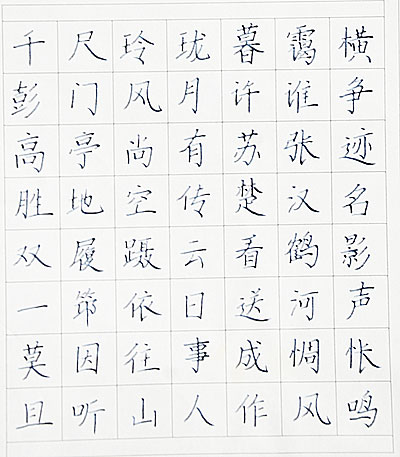 千尺玲珑暮霭横
彭门风月许谁争
高亭尚有苏张迹
胜地空传楚汉名
双履蹑云看鹤影
一筇依日送河声
莫因往事成惆怅
且听山人作风鸣